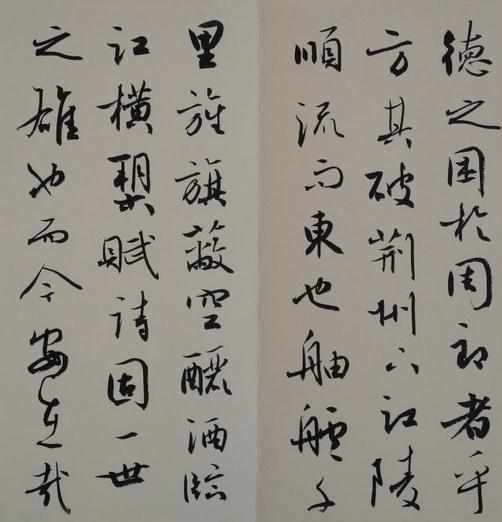 德之困於周郎者乎
方其破荆州下江陵
順流而東也舳艫千
里旌旗蔽空釃酒臨
江橫槊賦詩固一世
之雄也而今安在哉